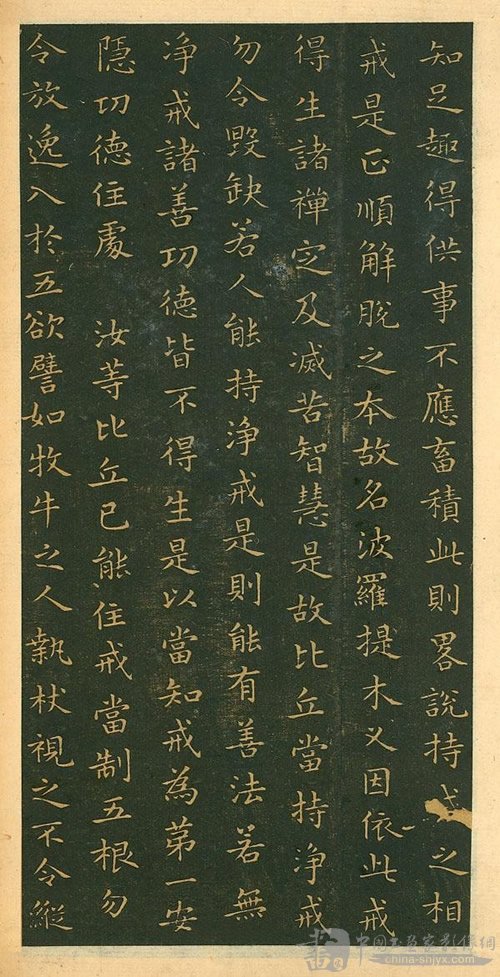 知足趣得供事不應畜積此則畧說持戒之相
戒是正順解脫之本故名波羅提木叉因依此戒
得生諸禪定及滅苦智慧是故比丘當持净戒
勿令毀缺若人能持净戒是則能有善法若無
净戒諸善功德皆不得生是以當知戒為第一安
隱功德住處 汝等比丘已能住戒當制五根勿
令放逸入於五欲譬如牧牛之人執杖視之不令縱
china-snjyx.com